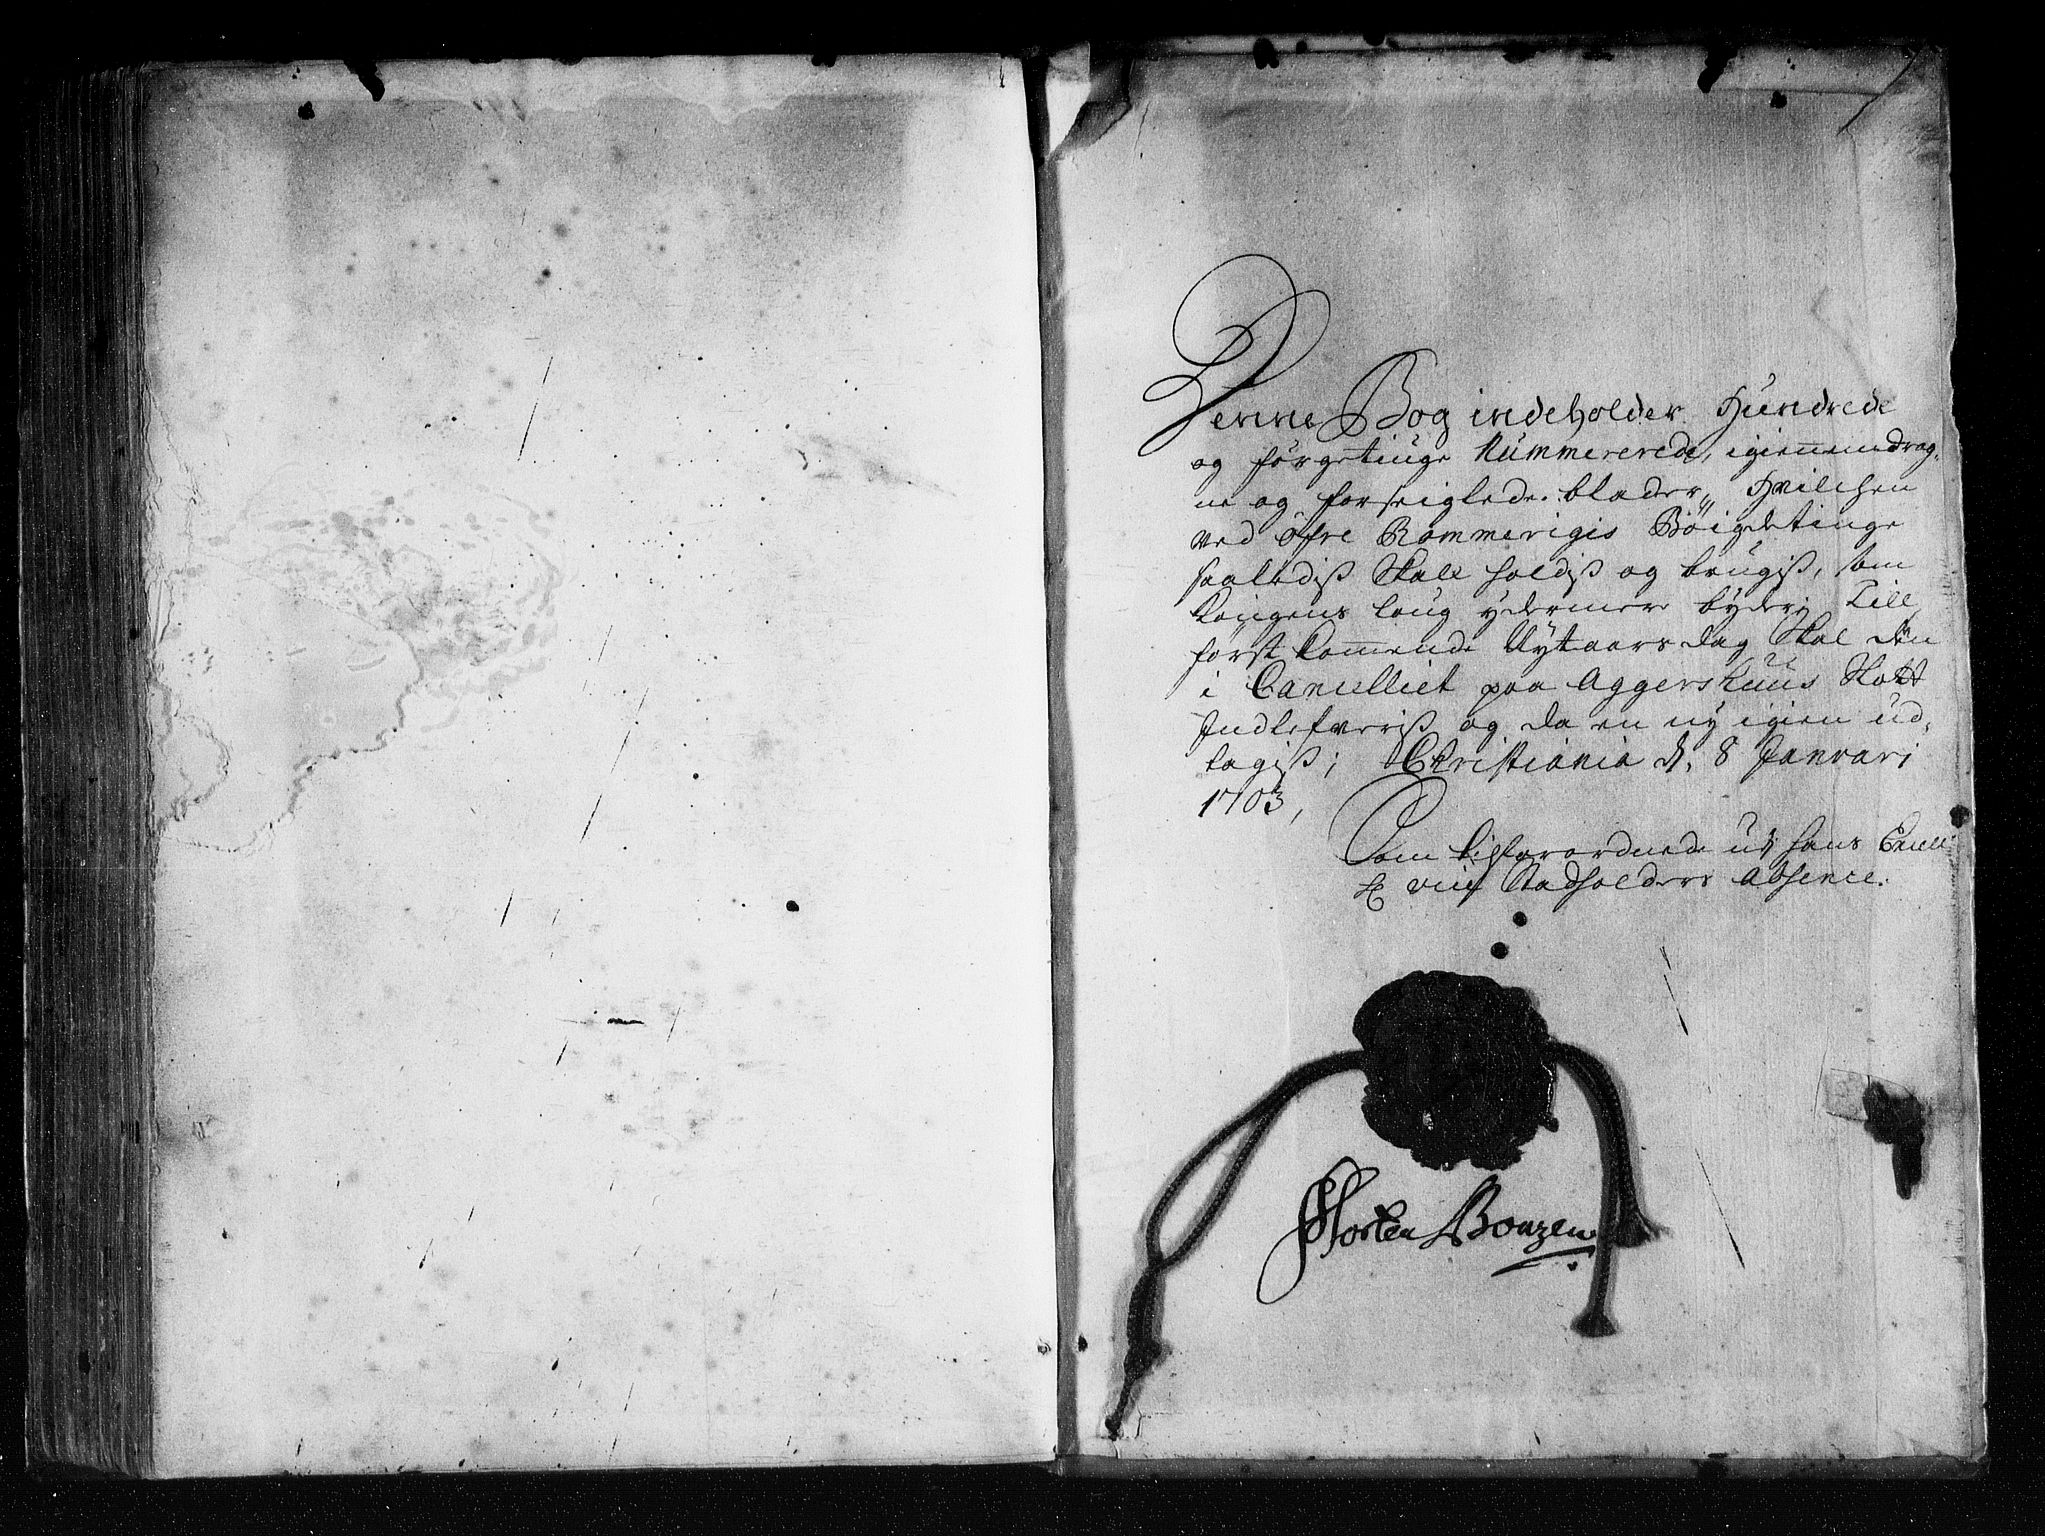 Denne Bog indeholder Hundrede
og førgetiuge Nummererede, igiennemdrag,
ne og forseiglede blader, Hvilchen
ved öfre Rommerigis Böigdetinge
saaledis Skall holdis og brugis, som
Kongens loug ydermere byder; Till
først Kommende Nytaarsdag Skal den
i Cancelliet paa Aggershuus Slott
Indlefveris og da en ny igien ud,
tagis; Christiania d. 8 Januari
1703,
Som tilforordnede udj hans
vice Stadholders Absence.
Morten